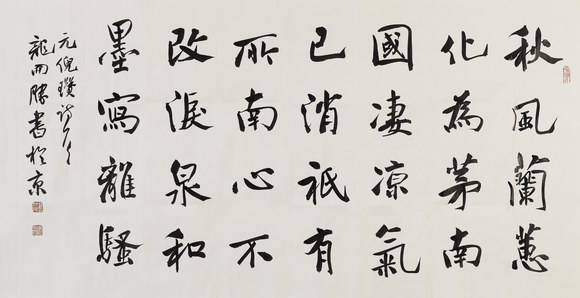 秋風蘭蕙
化為茅南
國凄涼氣
已消祇有
所南心不
改淚泉和
墨寫離騷
元倪瓚詩
龍 勝書於京